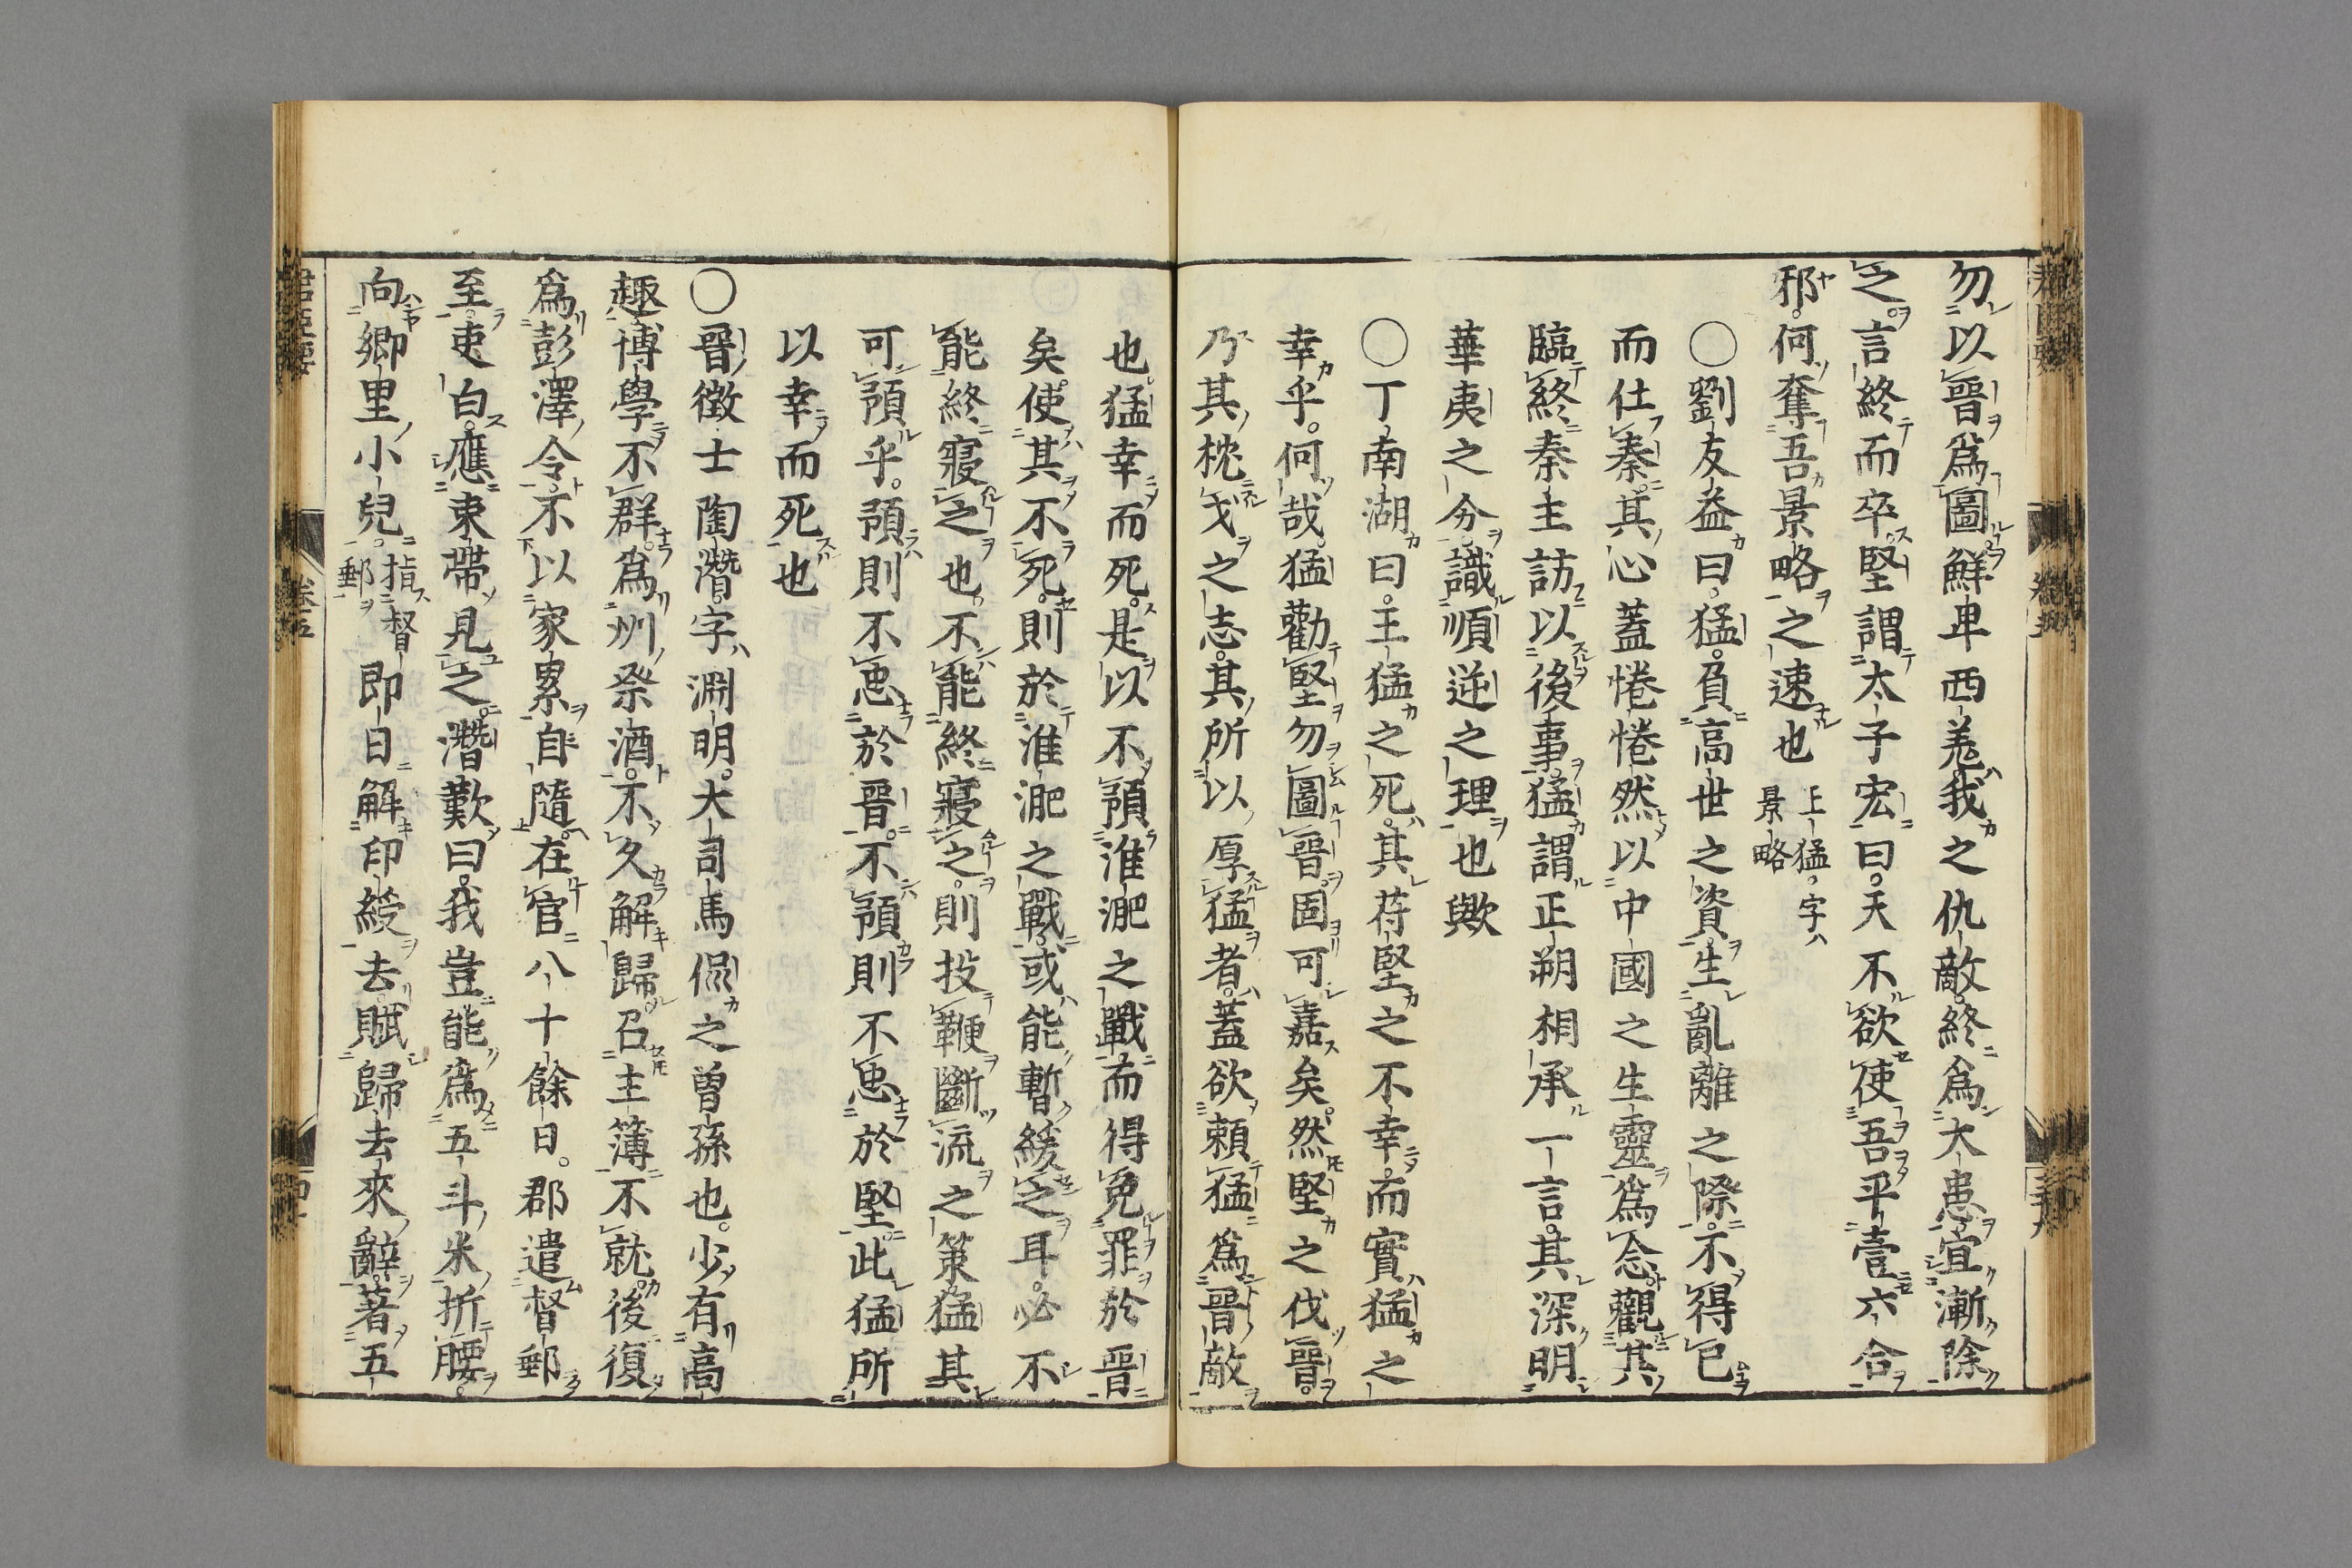 勿以晉爲圖鮮卑西羗我之仇敵終爲大患宜漸除
之言終而卒堅謂太子宏曰天不欲使吾平壹六合
邪何奪吾景略之速也上猛字景略
○劉友益曰猛負高世之資生亂離之際不得已
而仕秦其心蓋惓惓然以中國之生靈爲念觀其
臨終秦主訪以後事猛謂正朔相承一言其深明
華夷之分識順逆之理也歟
○丁南湖曰王猛之死其苻堅之不幸而實猛之
幸乎何哉猛勸堅勿圖晉固可嘉矣然堅之伐晉
乃其枕戈之志其所以厚猛者蓋欲頼猛爲晉敵
也猛幸而死是以不預淮淝之戰而得免罪於晉
矣使其不死則於淮淝之戰或能暫緩之耳必不
能終寢之也不能終寢之則投鞭斷流之策猛其
可預乎預則不忠於晉不預則不忠於堅此猛所
以幸而死也
○晉徵士陶潛字淵明大司馬侃之曽孫也少有高
趣博學不群爲州祭酒不久解歸召主簿不就後復
爲彭澤令不以家累自隨在官八十餘日郡遣督郵
至吏白應束帶見之潛歎曰我豈能爲五斗米折腰
向鄉里小兒指督郵即日解印綬去賦歸去來辭著五
卷五